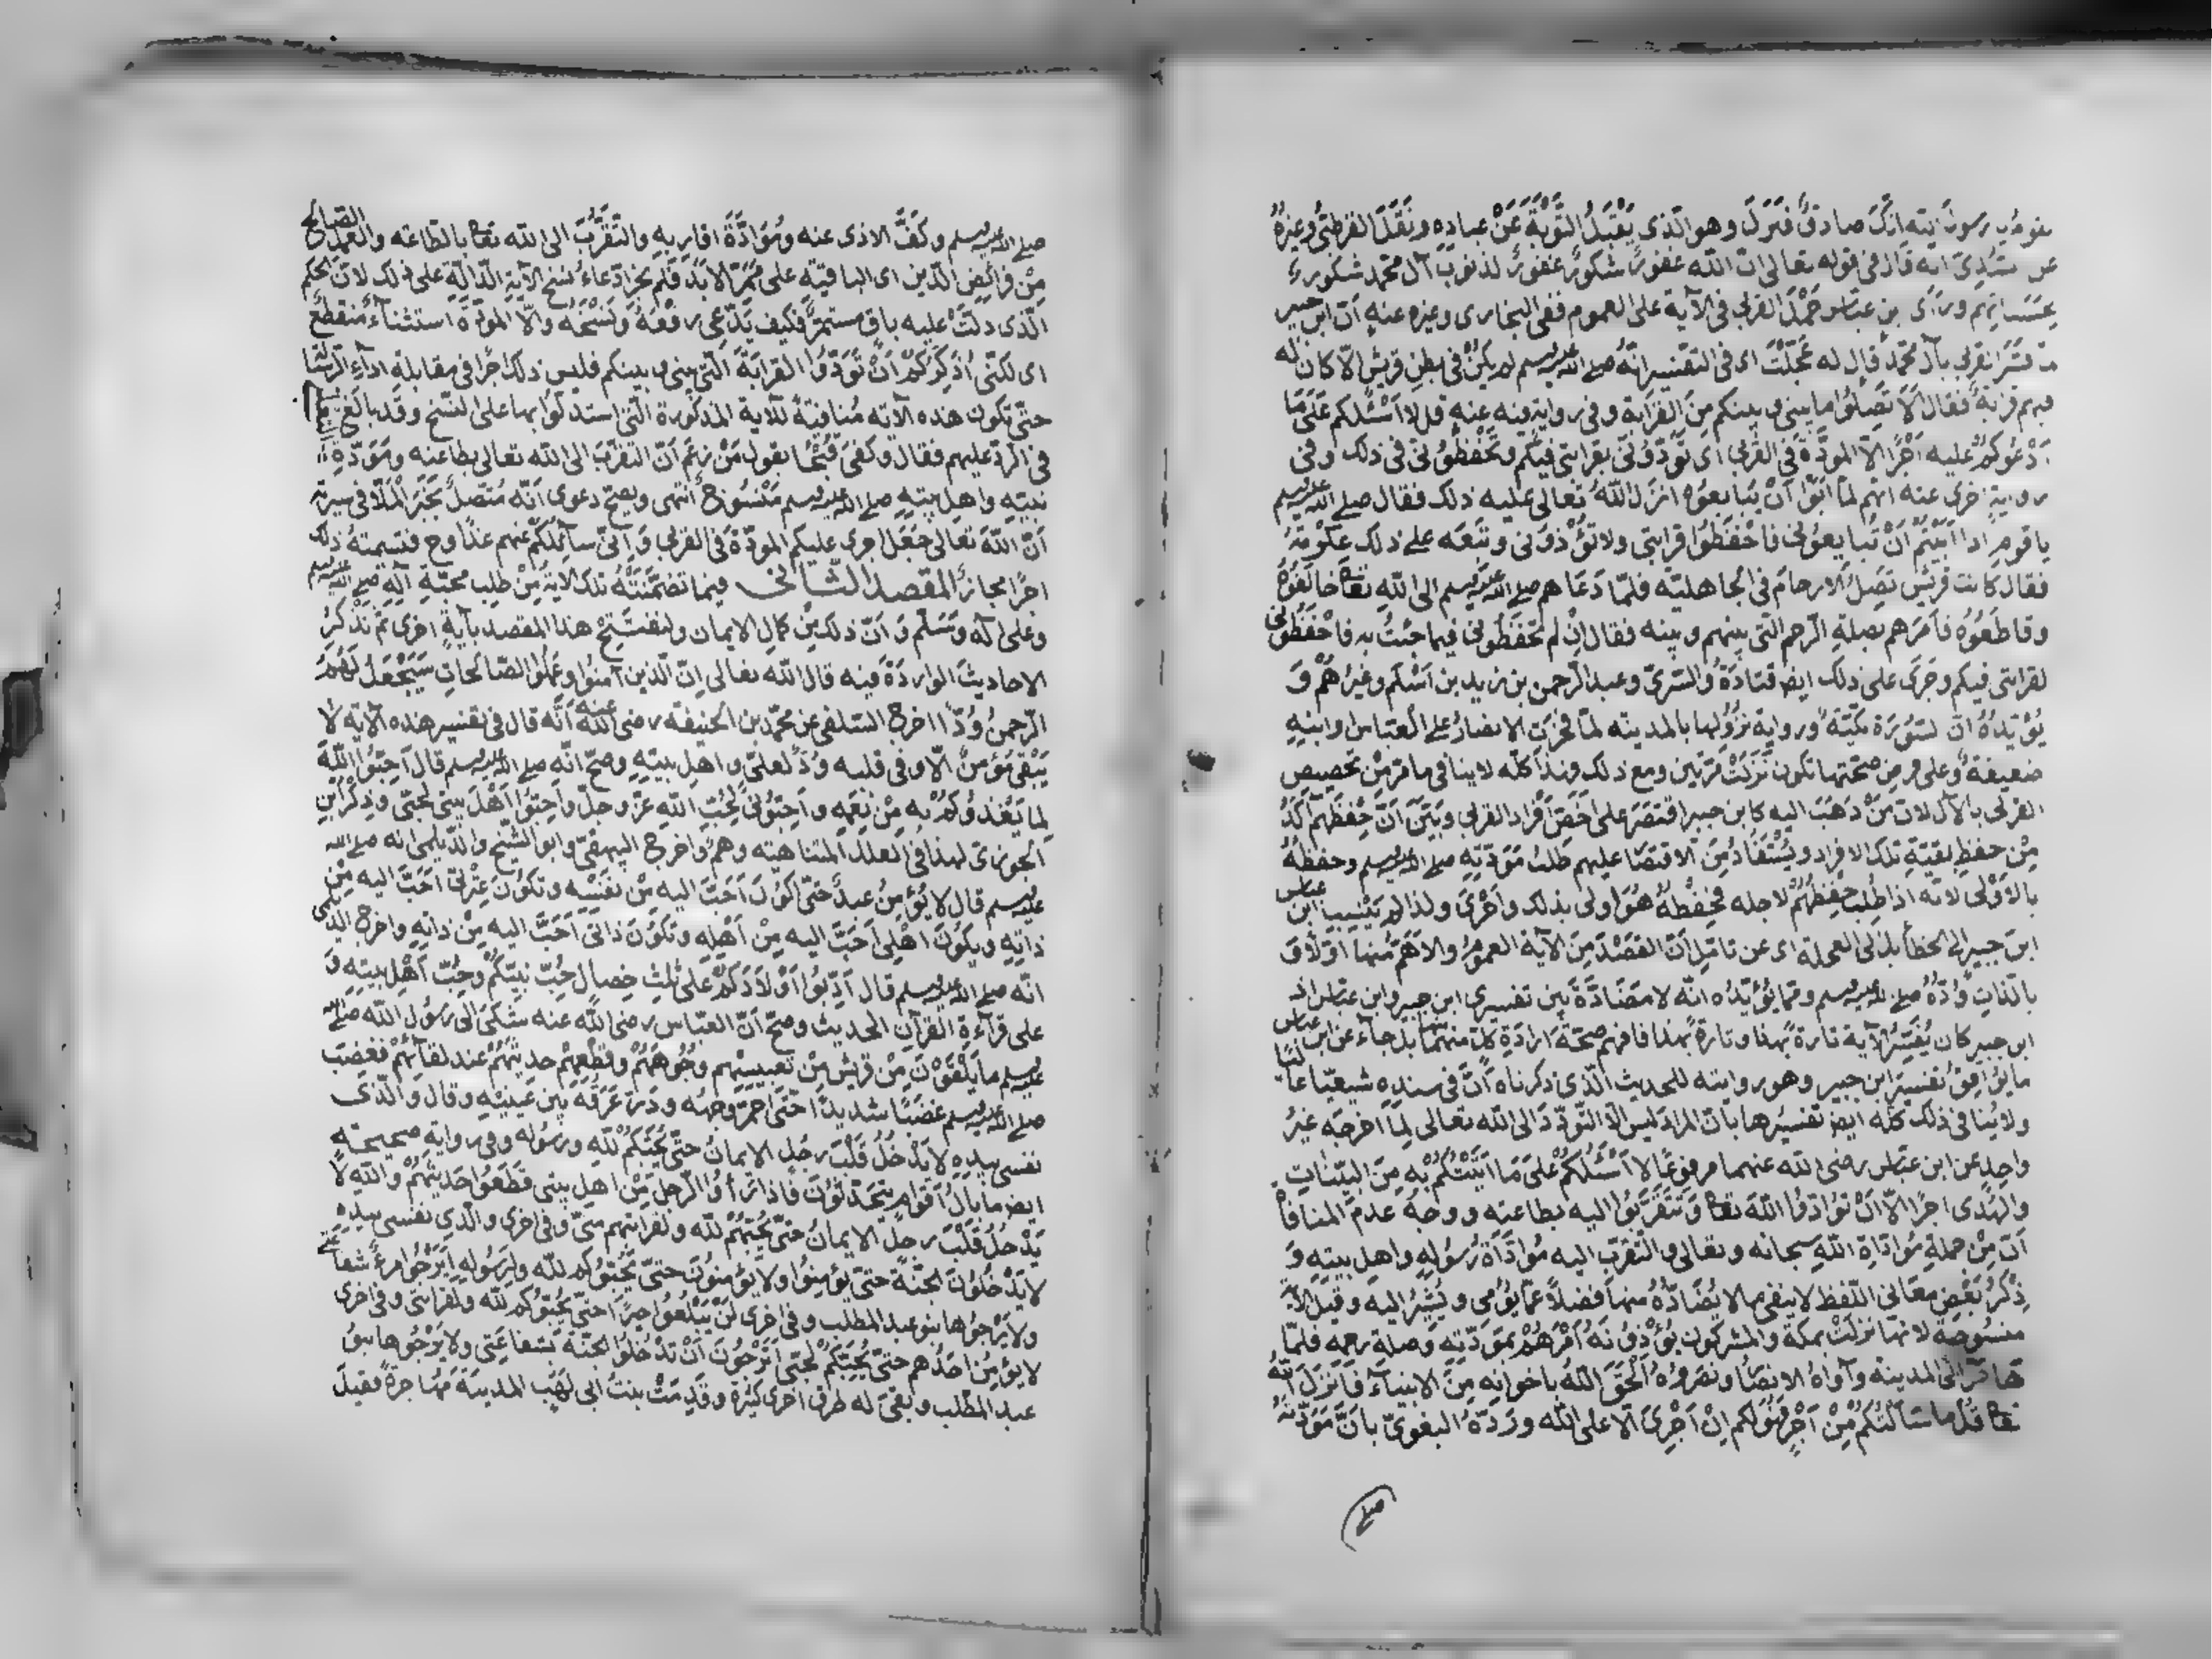 يقوم يا رسول الله انك صادق فنزل وهو الذى يَقْبَلُ التَّوْبَةَ عَنْ عبادِه ونَقَلَ القرطبىُّ وغيرُهُ
عن السُّدِى انه قال فى قوله تعالى ان الله غفورٌ شكورٌ غفورٌ لذنوب آل محمد شكورٌ
لِحَسَناتهم ورأى بن عباس حَمْلَ القربى فى الآية على العموم ففى البخارى وغيره عنه اَنَّ ابن جبير
لما فسَّر القربى بآل محمّد قال له عَجِلْتَ اى فى التفسير انّهُ صلى الله عليه وسلم لم يكُنْ فى بطنٍ قريش الا كان له
فيهم قرابة فقال اِلا تَصِلُوا ما بينى وبينكم مِنَ القرابة وفى روايةٍ فيه عنه قل لا اَسْئَلكم عَلَى مَا
اَدْعُوكُمْ عليه اَجْرًا الا المودّةَ فى القربى اى تَوَدُّونى بقرابتى فيكم وتَحْفَظُونى فى ذلك وفى
رواية اخرى عنه انهم لمّا اَبَوْا اَنْ يُبَايِعُوه انزل اللهُ تعالى عليه ذلك فقال صلى الله عليه وسلم
يا قوم اذا اَبَيْتُمْ اَنْ تُبايعونى فاحْفَظُوا قرابتى ولا تُؤْذونى وتَبِعَه على ذلك عكرمة
فقال كانت قريش تَصِلُ الارحامَ فى الجاهلية فلمّا دَعَاهم صلى الله عليه وسلم الى اللهِ تعا خالفُوهُ
وقاطَعُوهُ فاَمَرَهم بصلةِ الرّحم التى بينهم وبينه فقال اِنْ لم تَحْفَظُونى فيما جئتُ به فاحْفَظُونى
لقرابتى فيكم وجَرى على ذلك ايضا قتادَةُ والسّدىّ وعبد الرّحمن بن زيد بن اَسْلم وغيرُهُمْ وَ
يُؤيّدُهُ انّ السُّوْرَة مكّيّةٌ ورواية نزُوُلها بالمدينه لمّا فَخَرت الانصارُ على العبّاس وابنهِ
ضعيفةٌ وعلى فرضِ صحّتها تكون نَزَلَتْ مَرّتين ومع ذلك فهذا كلّه لا ينافى ما مرّ مِنْ تخصيص
القربى بالآل لانّ مَنْ ذَهَبَ اليه كابن جبير اقتصَرَ على اَخَصِّ اَفْرادِ القربى وبَيّنَ اَنّ حِفْظَهم آكَدُ
مِنْ حفظِ بقيّةِ تلك الافراد ويُسْتَفَادُ مِنَ الاقتصَار عليهم طلبُ مَوَدّتِهِ صلى الله عليه وسلم وحفظهُ
بالاَوْلى لانّه اذا طُلِبَ حِفْظُهُمْ لاجله فحِفْظُهُ هُوَ اولى بذلك واَحْرَى ولذا لم يَنْسِب ابن عباس
ابنَ جبير الى الخطأ بل الى العجلة اى عن تامّل اَنّ القصْدَ مِنَ الآية العمومُ والاَهمّ مِنْها اوّلا وَ
بالذّاتِ وُدّهُ صلى الله عليه وسلم وممّا يُؤيّده انّه لا مُضَادّة بَيْن تفسيرى ابن جبير وابن عباس انّ
ابن جبير كان يُفَسِّرُ الآية تارةً بهذا وتارةً بهذا فافهم صحّةَ اِرادةِ كلّ منهما بل جاءَ عن ابن عباس
ما يُوَافِقُ تفسيرَ ابن جبير وهو روايته للحديث الّذى ذكرناه اَنّ فى سنده شيعيّا غاليا
ولا يُنافى ذلك كلّه ايضا تفسيرُها بانّ المرادَ ليس الا التّودّدَ الى الله تعالى لِمَا اَخرجَه غيرُ
واحدٍ عن ابن عبّاس رضى الله عنهما مرفوعًا لا اَسْئَلُكُمْ على مَا اَتَيْتُكُمْ بهِ مِنَ البيّنات
والهُدى اجرًا الّا اَنْ تُوَادّوا اللهَ تعا وَتَتَقَرَّبُوا اليه بطاعته ووجهُ عدم المنافاة
اَنّ مِنْ جملةِ مُوَادّةِ اللهِ سبحانه وتعالى والتّقرّبِ اليه مُوَادّةَ رسُولهِ واهلِ بيتِهِ وَ
ذِكْرُ بَعْضِ معَانى اللّفظ لا ينفى ما لا يُضَادّهُ منها فضلاً عمّا يُؤْمِى ويُشِيْرُ اليه وقيل الآية
منسُوخةٌ لانّها نزلَتْ بمكّة والمشركون يُؤْذُونَهُ اَمَرَهُمْ بمَوَدّتِهِ وَصلة رحمه فلمّا
هاجَرَ الى المدينه وآواهُ الانصَارُ ونصَروُه اَلْحَقَ اللهُ باخوانِه مِنَ الانبيآءِ فَاَنْزَلَ اللهُ
تعا قُلْ ما سَاَلْتُكُمْ مِنْ اَجْرٍ فَهُوَ لكم اِنْ اَجْرِىَ الّا على الله وردّهُ البغوىّ بانَّ مَوَدّتَهُ
صلى
صلى الله عليه وسلم وكَفَّ الاذى عنه ومُوَادّةَ اقارِبهِ والتّقَرُّبَ الى الله تعا بالطاعه والعمل الصّالح
مِنْ فرائِضِ الدّين اى الباقيةِ على ممَرّ الاَبَدِ فلم يجز ادّعاءُ نسْخِ الآيةِ الدّالّةِ على ذلك لانّ الحكم
الّذى دلّت عليه باقٍ مستمرّ فكيف يَدّعى رَفْعَهُ وَنَسْخَهُ والّا المودّةَ استثنآءٌ مُنقطعٌ
اى لكنّى اُذَكِّرُكُمْ اَنْ تَوَدّوا القرابةَ الّتى بينى وبينكم فليس ذلك اجرًا فى مقابلةِ ادآءِ الرّسالة
حتّى تكون هذه الآيه مُنافيةً للاية المذكورة الّتى استدلّوا بها على النّسْخ وقد بالغ الثعلبى
فى الرّدّ عليهم فقال وكفى قُبْحًا بقول مَنْ زعَمَ اَنّ التقرّبَ الى الله تعالى بطاعته ومَوَدّةِ
نبيّهِ واهل بيتِهِ صلى الله عليه وسلم مَنْسُوخٌ انتهى ويصحّ دعوى اَنّه مُتّصلٌ بخَبَر الملّا فى سيرته
اَنّ اللهَ تَعَالى جَعَل اجرى عليكم المودّةَ فى القربى وَاِنّى سآئلُكُم عنهم غدًا وح فتسميتهُ ذلك
اجرًا مجازٌ المقصد الثّانى فيما تضمّنَتْهُ تلك الآيةُ مِنْ طلب محبّةِ آلهِ صلى الله عليه
وعلى آله وَسَلّم وَاَنّ ذلك مِنْ كمالِ الايمان ولنفتتِحْ هذا المقصدَ بآيةٍ اخرى ثم نَذْكُرُ
الاحاديثَ الوارِدَةَ فيه قال الله تعالى اِنّ الّذين آمنُوا وعمِلُوا الصّالحاتِ سَيَجْعَلُ لَهُمُ
الرّحمنُ وُدًّا اخرج السّلفى عن محمّد بن الحنيفة رضى الله عنه اَنّه قال فى تفسير هذه الآية لا
يَبْقَى مُؤْمنٌ الّا وفى قلبه وُدّ لعلىّ واهلِ بيتِهِ وصحّ انّه صلى الله عليه وسلم قال اَحِبّوا اللهَ
لِما يَغْذُوكُمْ به مِنْ نِعَمِهِ واَحِبّونى لِحُبّ اللهِ عزّ وجلّ واَحِبّوا اَهْلَ بيتى لحُبّى وذِكْرُ ابن
الجوزى لهذا فى العلل المتناهيه وهمٌ واخرج البيهقىّ وابو الشّيخ والدّيلمى انه صلى الله
عليه وسلم قال لا يُؤمِنُ عبدٌ حتّى اكُونَ اَحَبَّ اليه مِنْ نَفْسِه وتكونَ عِتْرتى اَحَبَّ اليه مِنْ
ذاتِهِ ويكُونَ اهْلِى اَحَبّ اليه مِنْ اَهْلِهِ وتكُونَ ذاتى اَحَبّ اليه مِنْ ذاتِهِ واخرج الديلمى
انّه صلى الله عليه وسلم قال اَدّبُوا اَوْلَادَكُمْ على ثلثِ خِصال حُبِّ نبيّكُمْ وحُبّ اَهْلِ بيتِهِ وَ
على قرآءةِ القرآن الحديث وصحّ انّ العبّاس رضى الله عنه شكى الى رَسُول الله صلى الله
عليه وسلم ما يَلْقَوْنَ مِنْ قريش مِنْ تعبيسِهِم وجُوهَهُمْ وقطْعِهِمْ حديثَهُمْ عند لقآئهم فغضِبَ
صلى الله عليه وسلم غضَبًا شديدًا حتّى احمرّ وجهُه ودَرّ عَرَقُه بين عَيْنيْهِ وقال وَالّذى
نفسى بيده لا يَدْخُلُ قَلْبَ رجلٍ الايمانُ حتّى يُحِبّكُمْ لله ورسُوله وفى روايةٍ صحيحةٍ
ايضا ما بالُ اَقوامٍ يتحَدّثُونَ فاذا رَأوُا الرّجلَ مِنْ اهلِ بيتى قَطَعُوا حَدِيثَهُمْ والله لا
يَدْخُلُ قَلْبَ رجلٍ الايمانُ حتّى يُحِبّهُمْ لله ولقرابتهم منّى وفى اخرى والّذى نفسى بيده
لا يَدْخُلُونَ الجنّةَ حتّى يُؤمِنُوا ولا يُؤمنُونَ حتّى يُحِبّوكم لله ولِرَسُولهِ اَيَرْجُوا مرءٌ شفاعتى
ولا يَرْجُوها بنو عبد المطلب وفى اخرى لَنْ يَبْلُغُوا خيرًا حتّى يُحِبّوكم لله ولقرابتى وفى اخرى
لا يُؤمِنُ اَحَدُهم حتّى يُحِبّكُمْ لحُبّى اَتَرْجُونَ اَنْ تدْخلوا الجنّةَ بشفاعَتى ولا يَرْجُوها بنوُ
عبد المطّلب وبَقى له طرق اخرى كثيرة وقَدِمَتْ بنتُ ابى لَهَب المدينةَ مهاجرةً فقيل